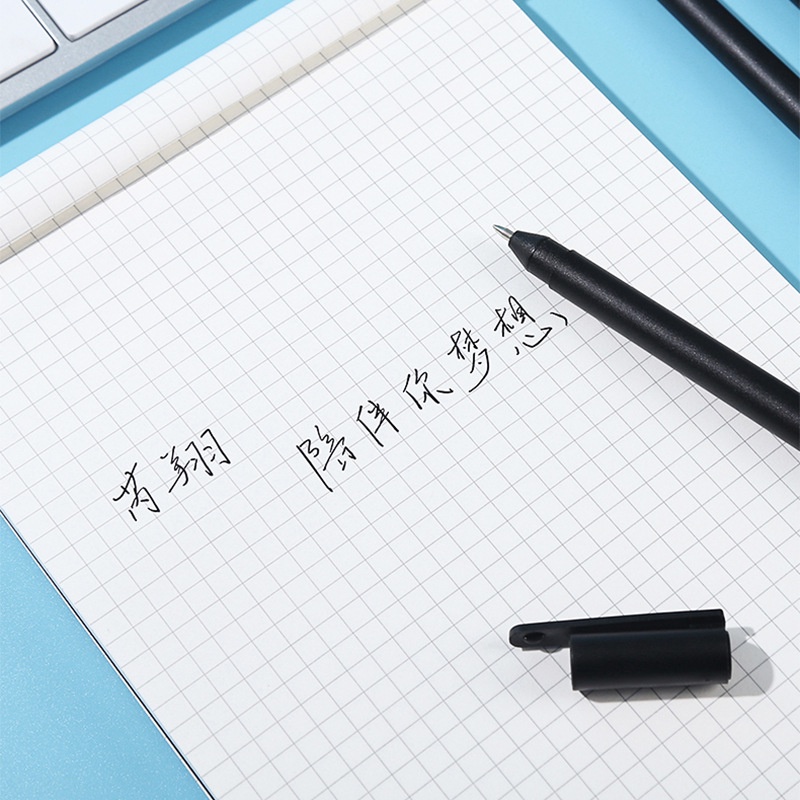 芮翔 陪伴你梦想